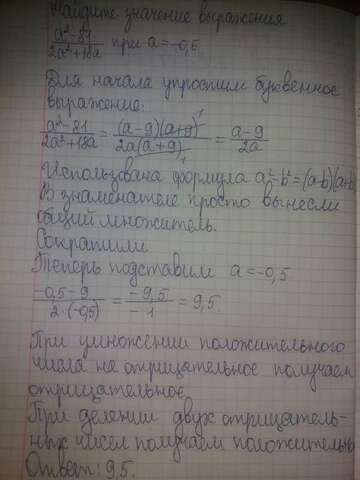 Найдите значение выражения
a²-81 / 2a²+18a при a=-0,5
Для начала упростим буквенное
выражение:
a²-81 / 2a²+18a = (a-9)(a+9)¹ / 2a(a+9)₁ = a-9 / 2a
Использована формула a²-b²=(a-b)(a+b)
В знаменателе просто вынесли
общий множитель.
Сократили
Теперь подставим a=-0,5
-0,5-9 / 2·(-0,5) = -9,5 / -1 = 9,5.
При умножении положительного
числа на отрицательное получаем
отрицательное.
При делении двух отрицатель-
ных чисел получаем положительн
Ответ: 9,5.